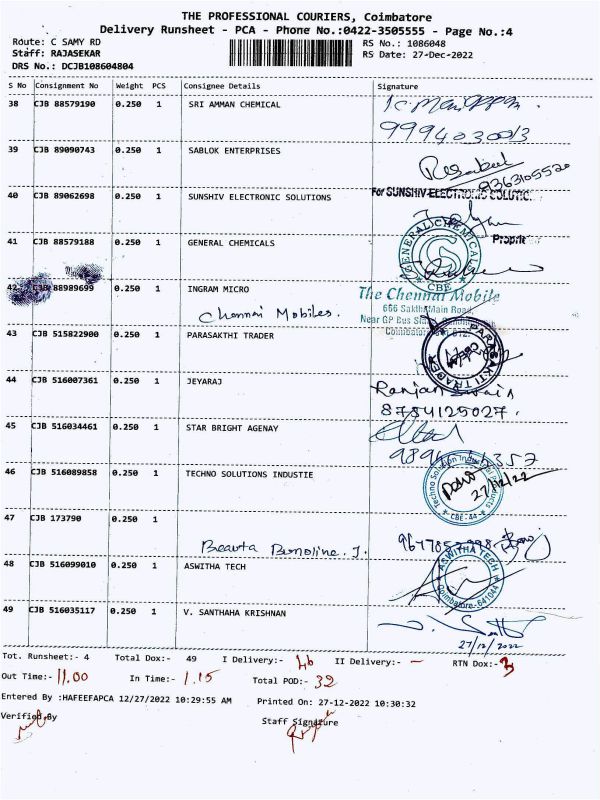 THE PROFESSIONAL COURIERS, Coimbatore
Delivery Runsheet - PCA - Phone No.:0422-3505555 - Page No.:4
Route: C SAMY RD
RS No.: 1086048
Staff: RAJASEKAR
RS Date: 27-Dec-2022
DRS No.: DCJB108604804
S No Consignment No Weight PCS Consignee Details Signature
38 CJB 88579190 0.250 1 SRI AMMAN CHEMICAL
9994030013
39 CJB 89090743 0.250 1 SABLOK ENTERPRISES
9363105520
40 CJB 89062698 0.250 1 SUNSHIV ELECTRONIC SOLUTIONS
For SUNSHIV ELECTRONIC SOLUTIC
Propri
41 CJB 88579188 0.250 1 GENERAL CHEMICALS
GENERAL CHEMICALS
CBE
42 CJB 88989699 0.250 1 INGRAM MICRO
Chennai Mobiles.
The Chennai Mobile
666 Sakthi Main Road,
Near GP Bus
Coimbatore
43 CJB 515822900 0.250 1 PARASAKTHI TRADER
PARASAKTI TRADE
44 CJB 516007361 0.250 1 JEYARAJ
Ranjan
8754125027.
45 CJB 516034461 0.250 1 STAR BRIGHT AGENAY
46 CJB 516089858 0.250 1 TECHNO SOLUTIONS INDUSTIE
Techno Solution Industrial Products
CBE-44
27/12/22
47 CJB 173790 0.250 1
48 CJB 516099010 0.250 1 ASWITHA TECH
ASWITHA TECH
Coimbatore-641044
49 CJB 516035117 0.250 1 V. SANTHAHA KRISHNAN
27/12/2022
Tot. Runsheet:- 4 Total Dox:- 49 I Delivery:- 46 II Delivery:- – RTN Dox:- 3
Out Time:- 11.00 In Time:- 1.15 Total POD:- 32
Entered By :HAFEEFAPCA 12/27/2022 10:29:55 AM Printed On: 27-12-2022 10:30:32
Verified By Staff Signature